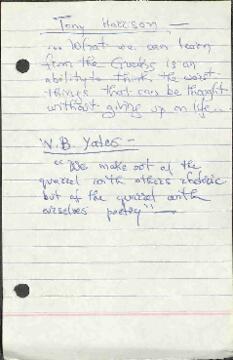 Tony Harrison —
... What we can learn
from the Greeks is an
ability to think the worst
things that can be thought
without giving up on life...
W.B. Yates -
"We make out of the
quarrel with others rhetoric
but of the quarrel with
ourselves poetry" —